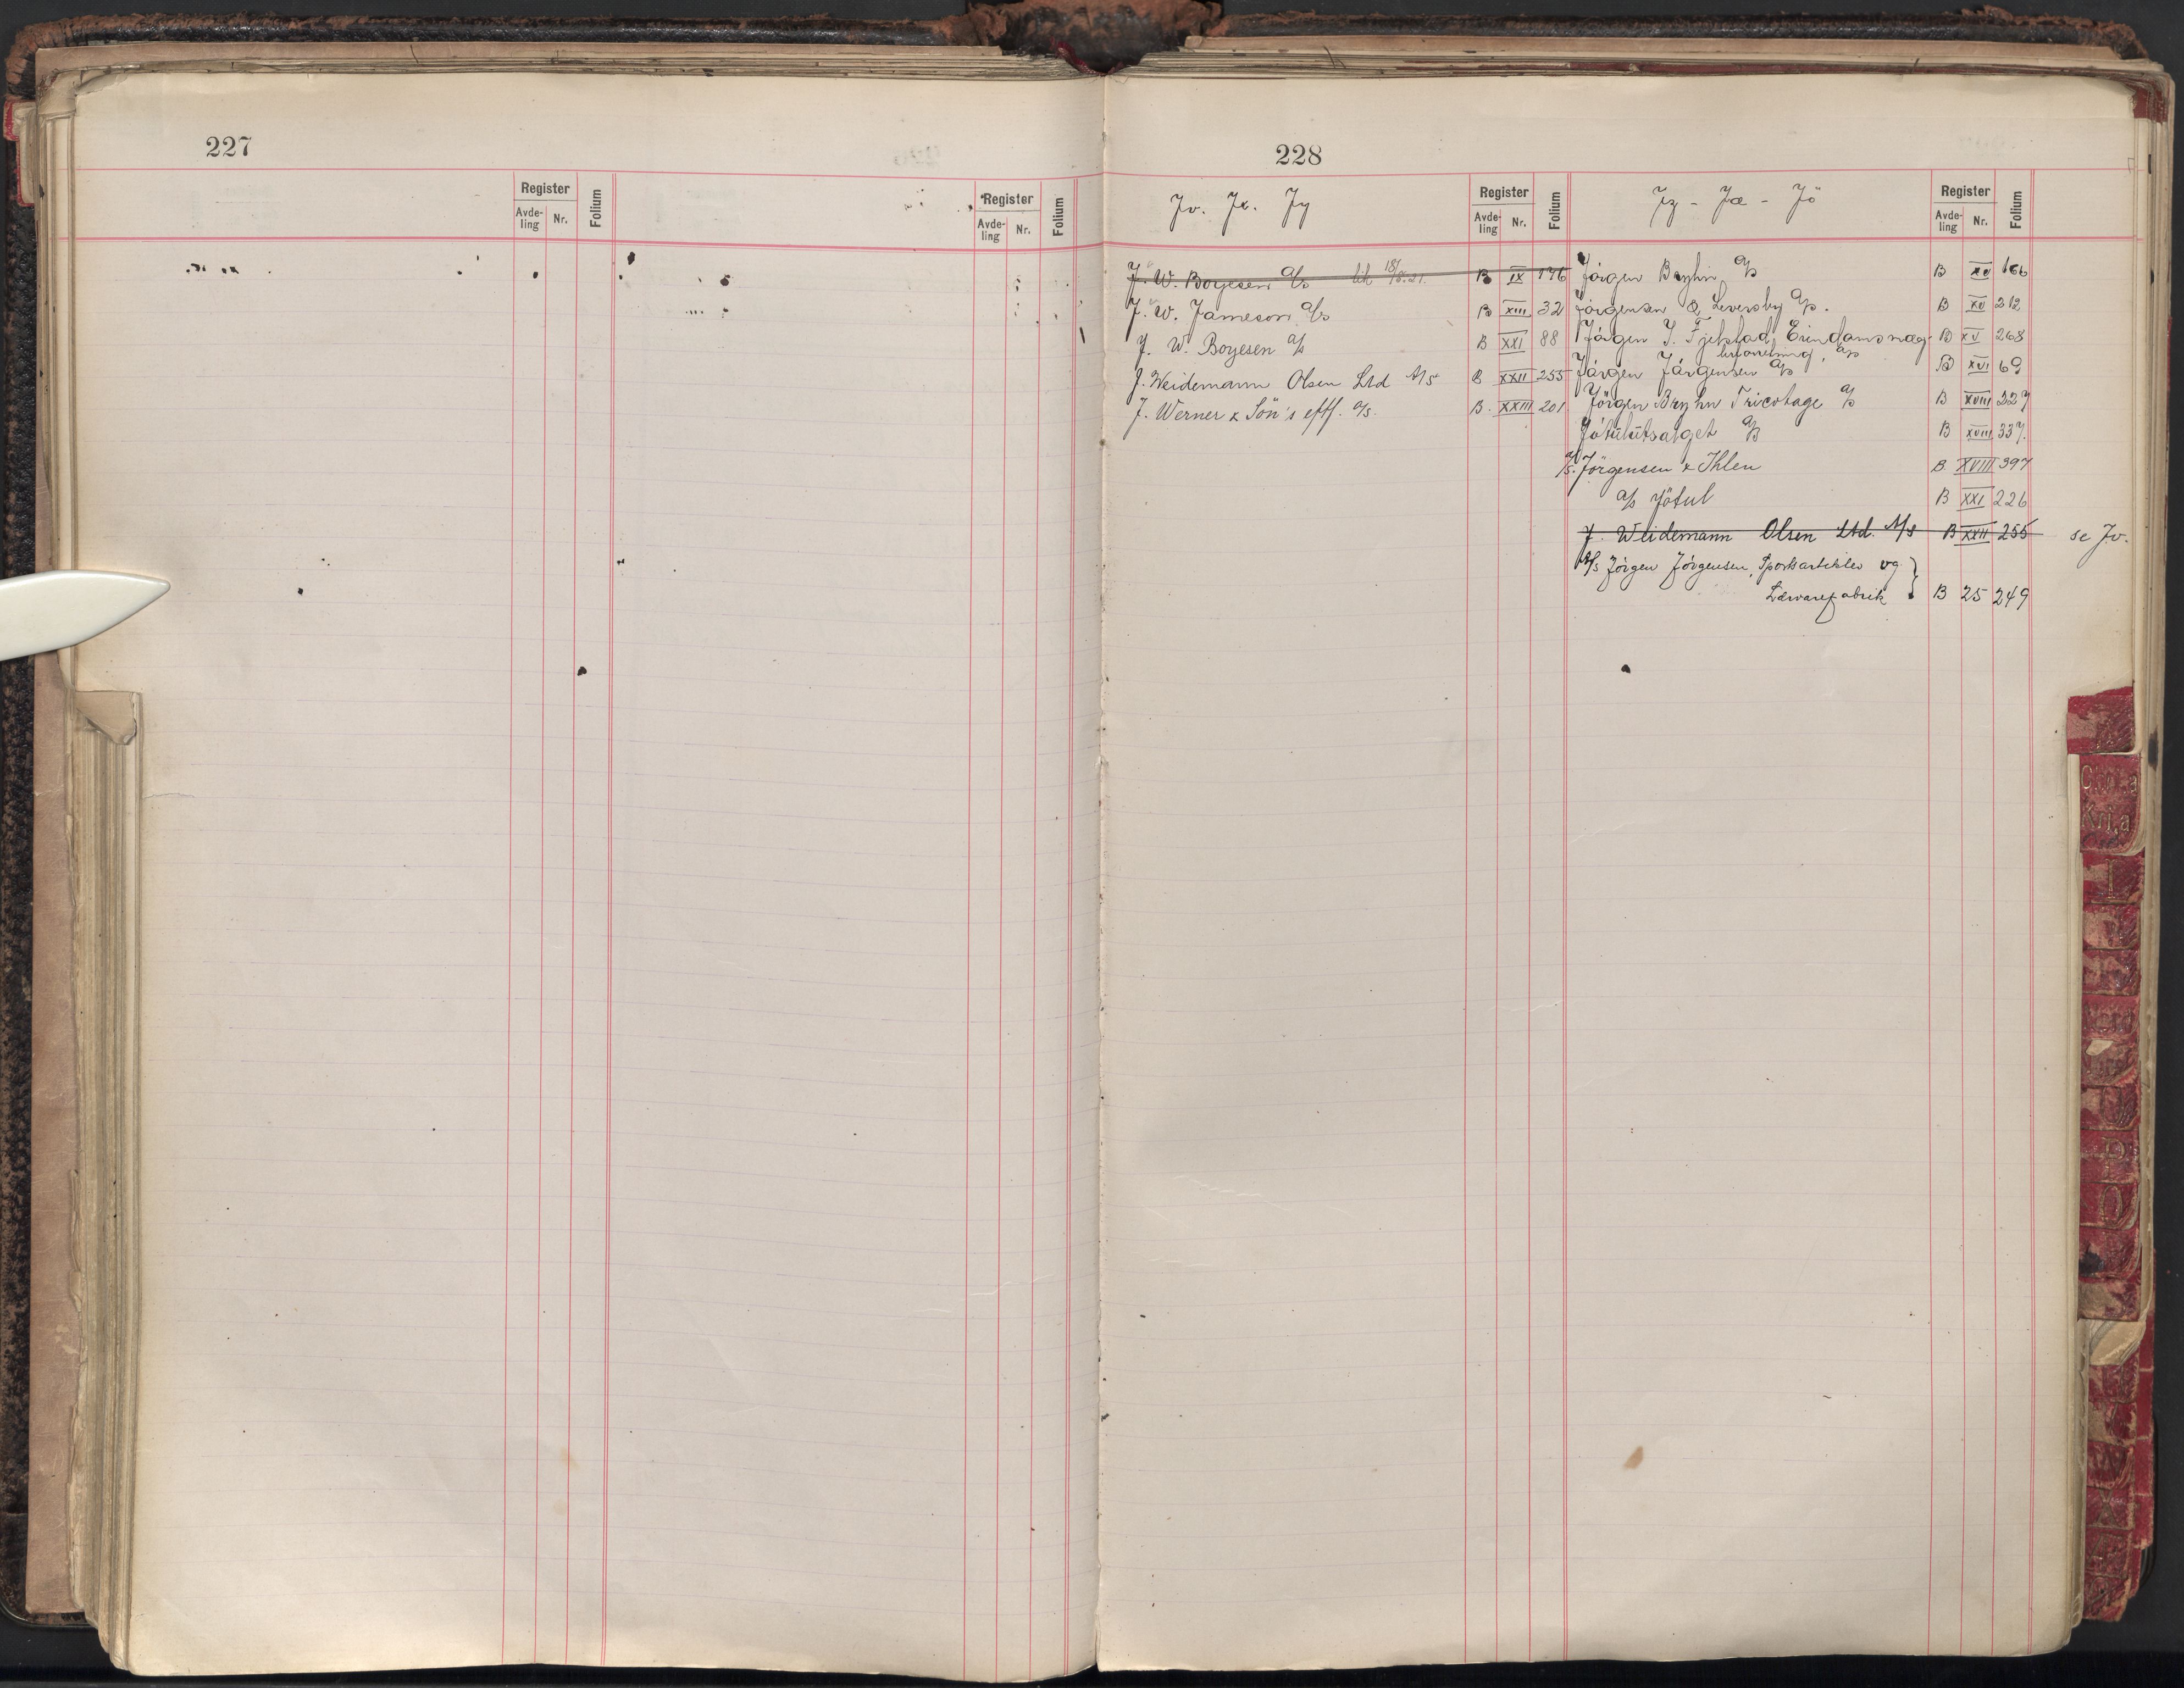 227
Register
Avde-
ling
Nr.
Folium
Register
Avde-
ling
Nr.
Folium
228
Jv. Jx. Jy
Register
Avde-
ling
Nr.
Folium
J. W. Boyesen A/s 18/8.21. B IX 176
J. W. Jameson A/s B XIII 32
J. W. Boyesen A/s B XXI 88
J. Weidemann Olsen Ltd A/s B XXII 255
J. Werner & Sön's eftf. A/s. B. XXIII 201
Jz - Jæ - Jö
Register
Avde-
ling
Nr.
Folium
Jörgen Bryhn A/s B XV 166
Jörgensen & Leversby A/s. B XV 212
Jörgen J. Fjelstad, Eiendomsmæg- B XV 268
lerforretning, A/s
Jörgen Jörgensen A/s B XVI 69
Jörgen Bryhn Tricotage A/s B XVIII 327
Jötulutsalget A/s B XVIII 337.
A/s. Jörgensen & Ihlen B XVIII 397
A/s Jötul B XXI 226
J. Weidemann Olsen Ltd. A/s B XXII 255 se Jv.
A/s Jörgen Jörgensen, Sportsartikler og
Lærvarefabrik B 25 249
Chr.a
Kr.a
I
P